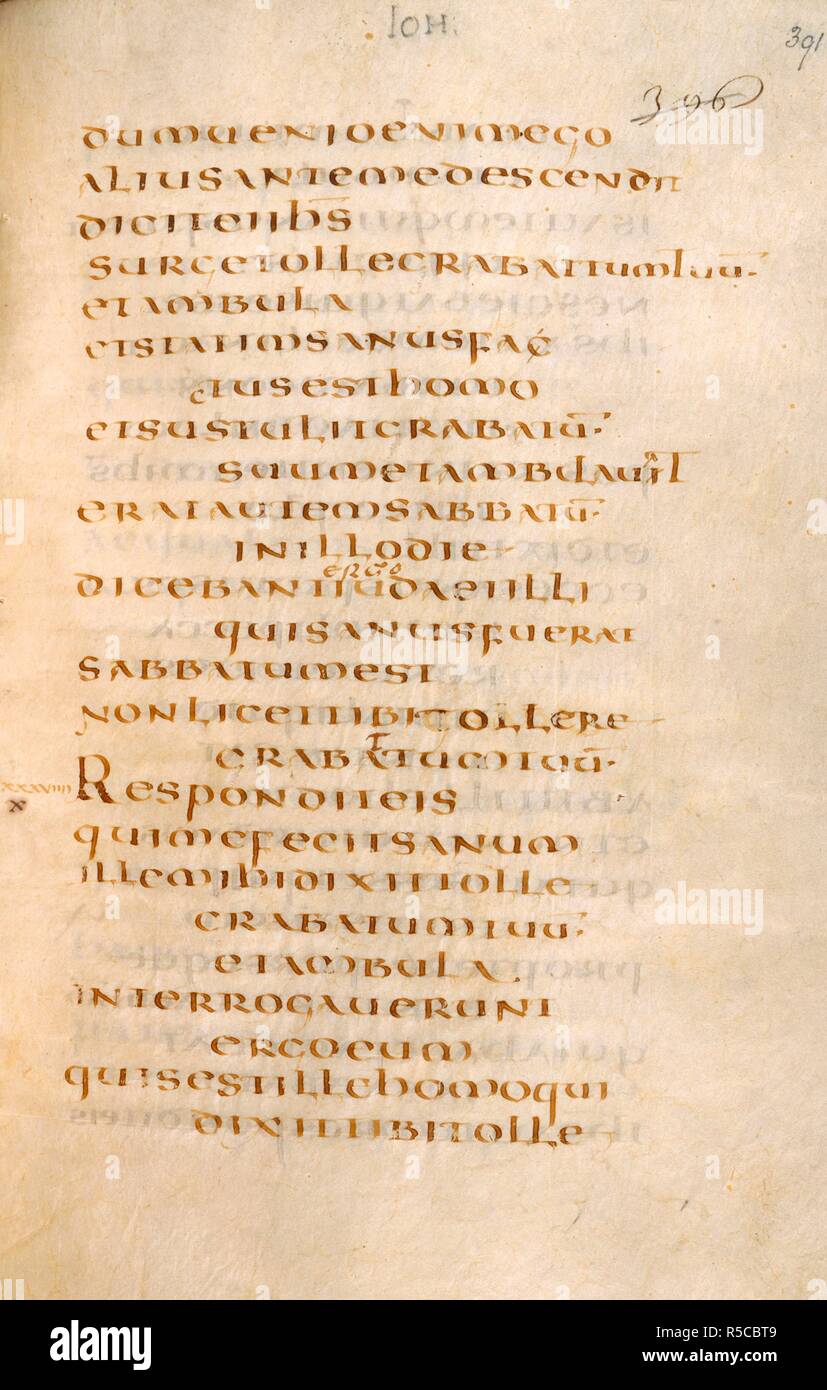 IOH.
391
396
dumuenioenimego
aliusantemedescendit
diciteiihs̄
surgetollegrabattumtuū·
etambula
etstatimsanusfac
tusesthomo
etsustulitgrabatū·
suumetambulauit
eratautemsabbatū·
inillodie
ergo
dicebantiudaeiilli
quisanusfuerat
sabbatumest
nonlicettibitollere
t
grabatumtuū·
xxxviiii Responditeis
x
quimefecitsanum
illemihidixittolle
grabatumtuū·
etambula
interrogauerunt
ergoeum
quisestillehomoqui
dixittibitolle
alamy
Image ID: R5CBT9
www.alamy.com